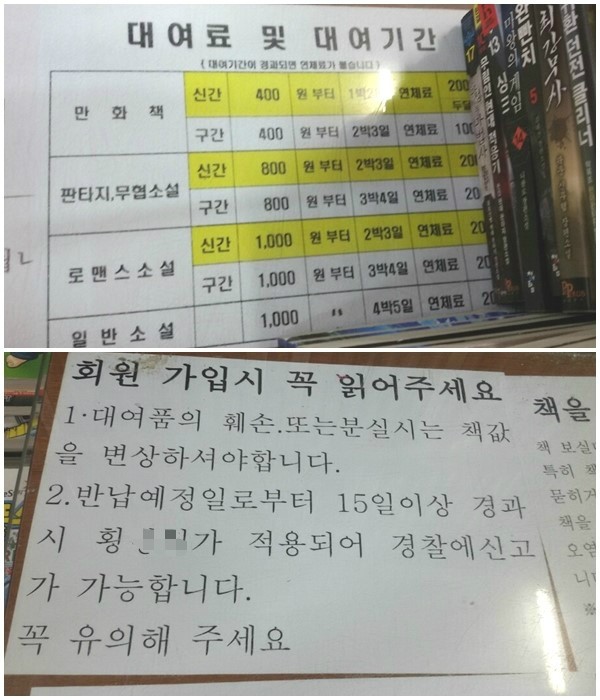 대여료 및 대여기간
( 대여기간이 경과되면 연체료가 붙습니다 )
만 화 책 신간 400 원 부터 연체료 200
구간 400 원 부터 2박3일 연체료
판타지,무협소설 신간 800 원 부터 2박3일 연체료
구간 800 원 부터 3박4일 연체료
로맨스소설 신간 1,000 원 부터 2박3일 연체료
구간 1,000 원 부터 3박4일 연체료
일반소설 1,000 〃 4박5일 연체료
17
13
5
던전 클리너
회원 가입시 꼭 읽어주세요
1·대여품의 훼손.또는분실시는 책값
을 변상하셔야합니다.
2.반납예정일로부터 15일이상 경과
시 횡 가 적용되어 경찰에신고
가 가능합니다.
꼭 유의해 주세요
책을
책 보실
특히 책
묻히거
책을
오염
니다